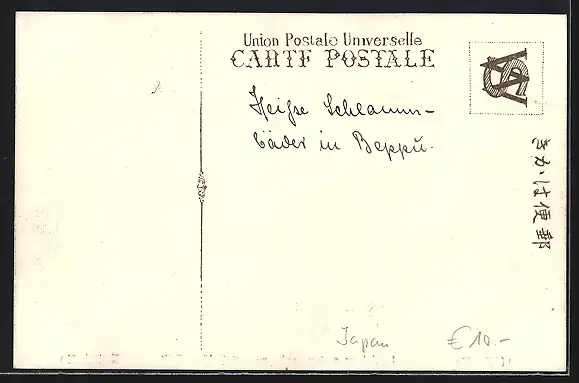 Union Postale Universelle
CARTE POSTALE
Heiße Schlamm-
bäder in Beppū.
きかは便郵
Japan
€ 10.-